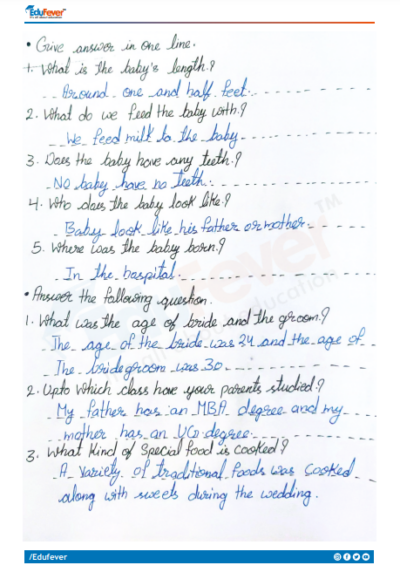 EduFever
• Give answer in one line.
1. What is the baby's length.?
Around one and half feet.
2. What do we feed the baby with.?
We feed milk to the baby
3. Does the baby have any teeth.?
No baby have no teeth.
4. Who does the baby look like.?
Baby look like his father or mother
5. Where was the baby born.?
In the hospital.
• Answer the following question.
1. What was the age of bride and the groom.?
The age of the bride was 24 and the age of
The bridegroom was 30
2. Upto Which class have your parents studied?
My father has an MBA degree and my
mother has an UG degree
3. What Kind of Special food is cooked?
A Variety of traditional foods was cooked
along with sweets during the wedding.
/Edufever